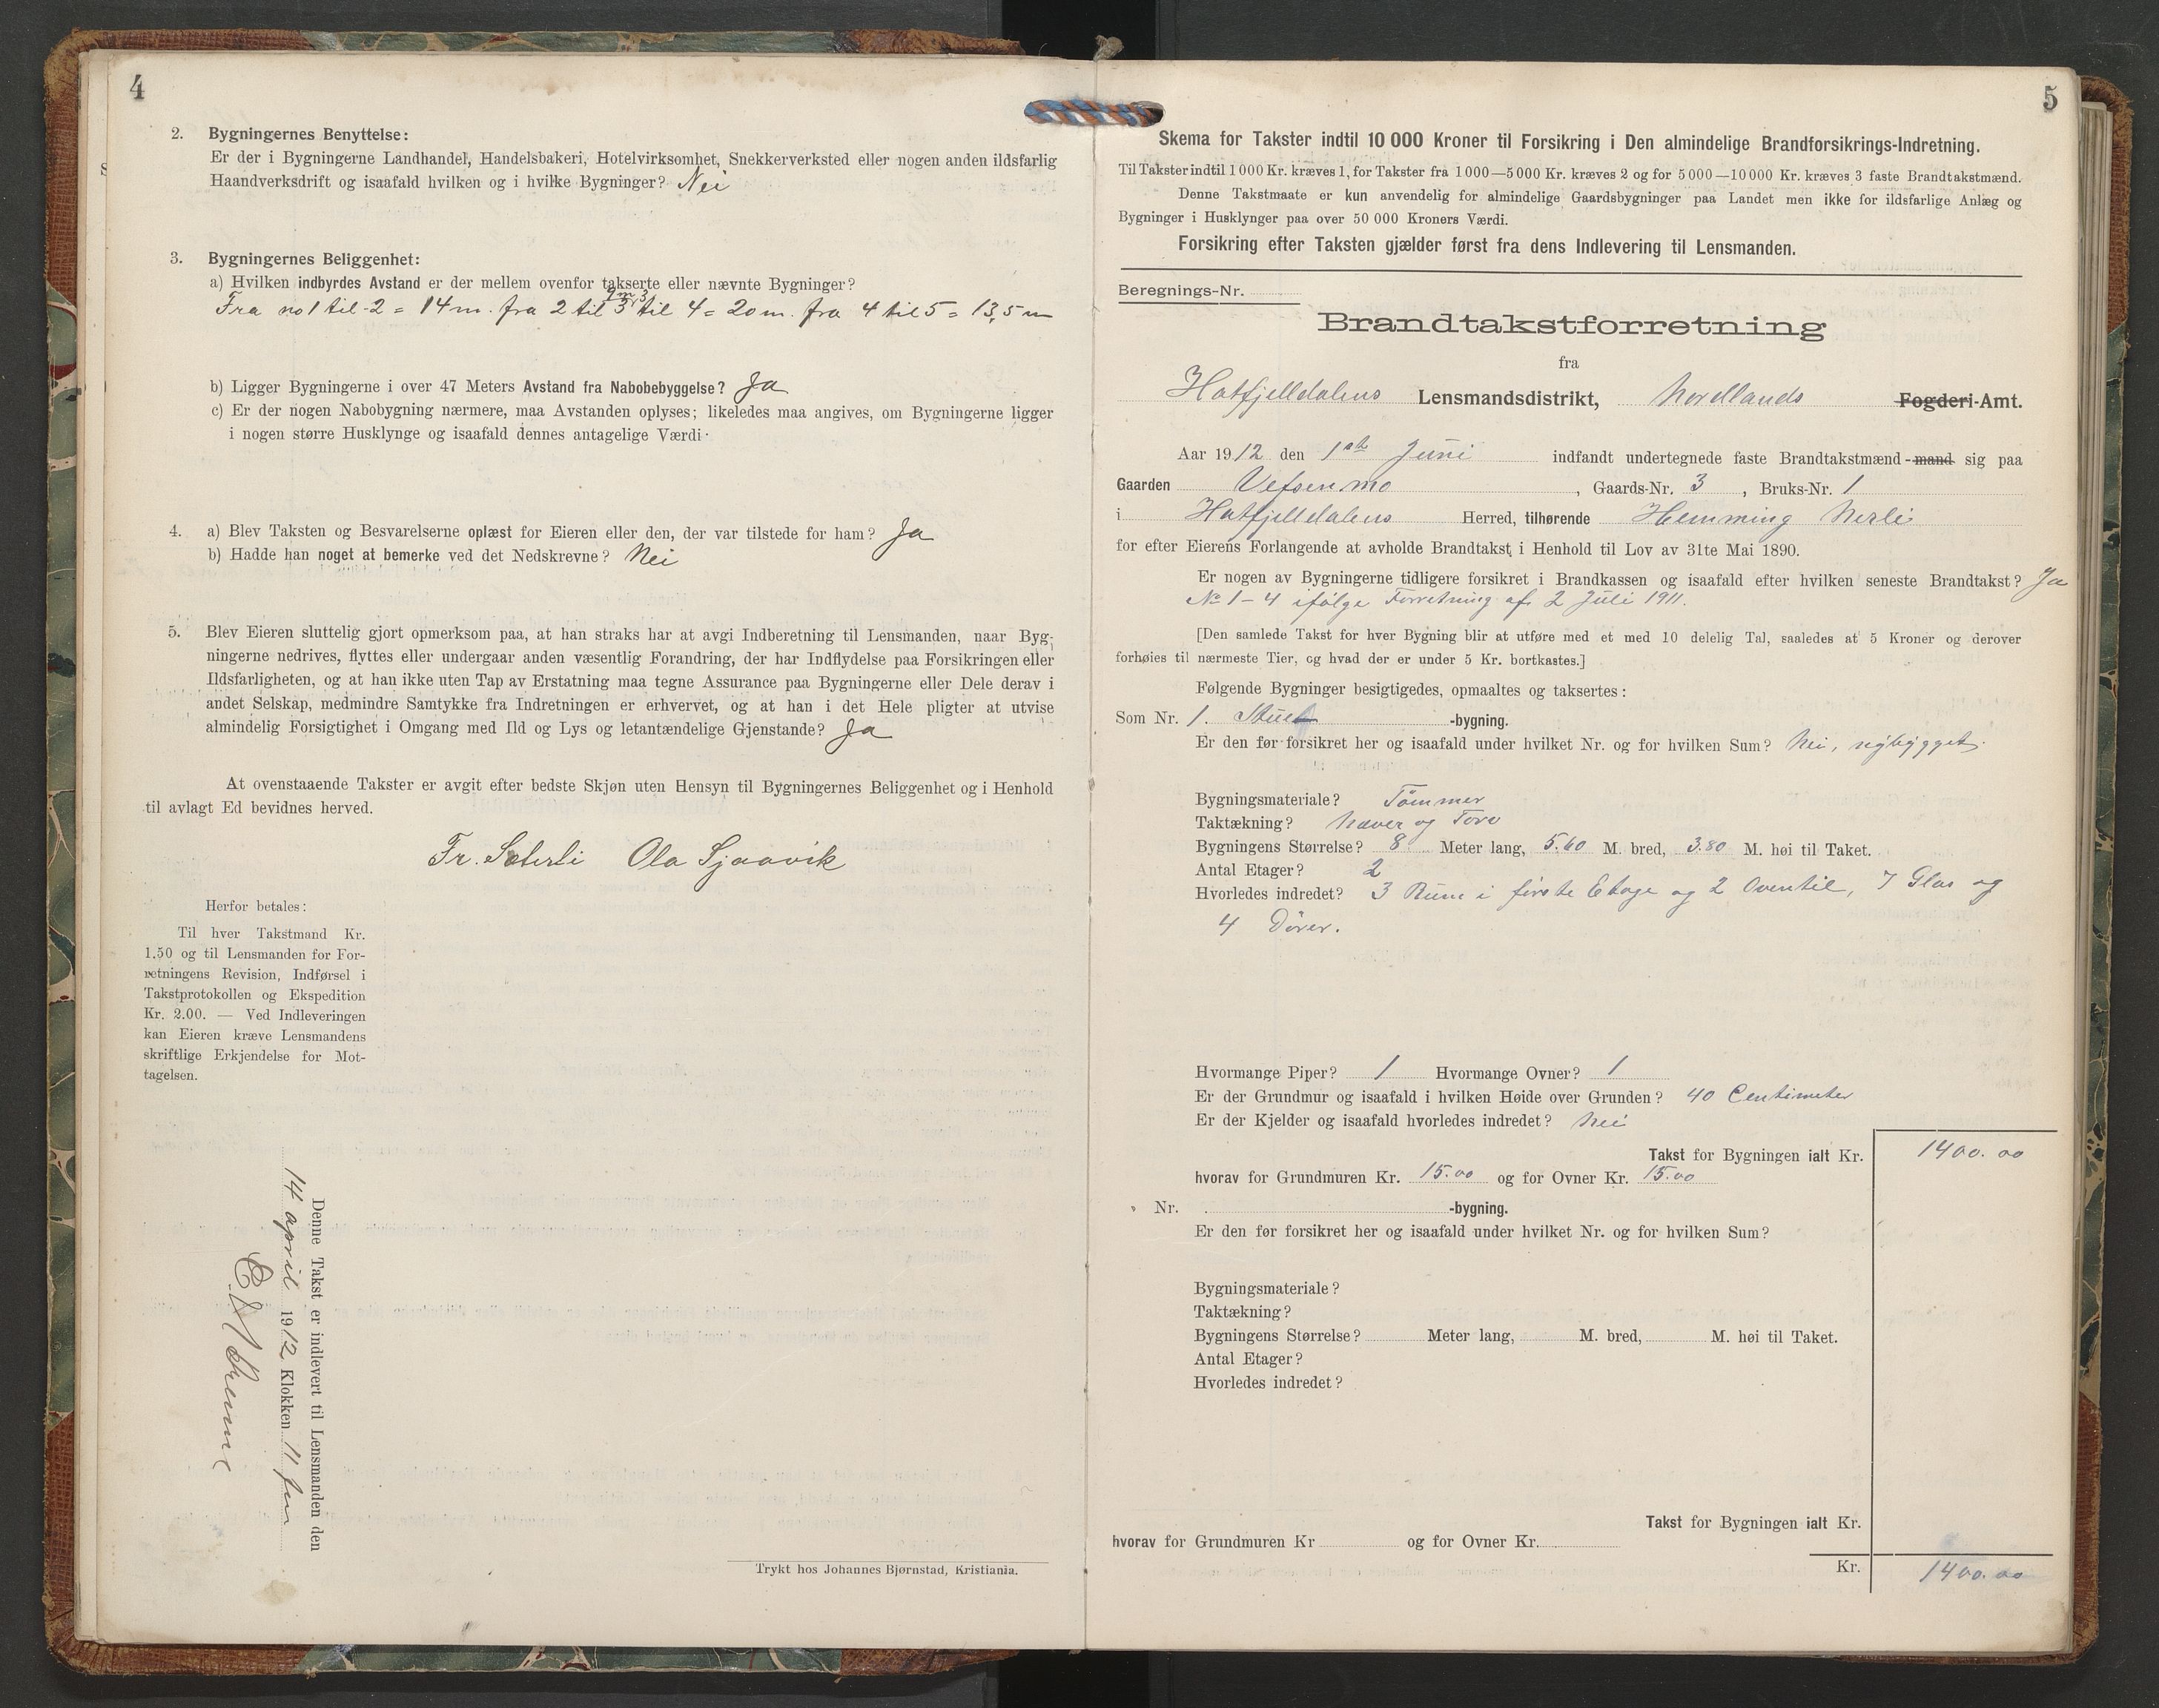 4
2. Bygningernes Benyttelse:
Er der i Bygningerne Landhandel, Handelsbakeri, Hotelvirksomhet, Snekkerverksted eller nogen anden ildsfarlig
Haandverksdrift og isaafald hvilken og i hvilke Bygninger? Nei
3. Bygningernes Beliggenhet:
a) Hvilken indbyrdes Avstand er der mellem ovenfor takserte eller nævnte Bygninger?
Fra no 1 til 2 = 14 m. fra 2 til 3 til 4 = 20 m. fra 4 til 5 = 13,5 m
b) Ligger Bygningerne i over 47 Meters Avstand fra Nabobebyggelse? Ja
c) Er der nogen Nabobygning nærmere, maa Avstanden oplyses; likeledes maa angives, om Bygningerne ligger
i nogen større Husklynge og isaafald dennes antagelige Værdi·
4. a) Blev Taksten og Besvarelserne oplæst for Eieren eller den, der var tilstede for ham? Ja
b) Hadde han noget at bemerke ved det Nedskrevne? Nei
5. Blev Eieren sluttelig gjort opmerksom paa, at han straks har at avgi Indberetning til Lensmanden, naar Byg-
ningerne nedrives, flyttes eller undergaar anden væsentlig Forandring, der har Indflydelse paa Forsikringen eller
Ildsfarligheten, og at han ikke uten Tap av Erstatning maa tegne Assurance paa Bygningerne eller Dele derav i
andet Selskap, medmindre Samtykke fra Indretningen er erhvervet, og at han i det Hele pligter at utvise
almindelig Forsigtighet i Omgang med Ild og Lys og letantændelige Gjenstande? Ja
At ovenstaaende Takster er avgit efter bedste Skjøn uten Hensyn til Bygningernes Beliggenhet og i Henhold
til avlagt Ed bevidnes herved.
Fr. Sæterli Ola Sjaavik
Herfor betales:
Til hver Takstmand Kr.
1.50 og til Lensmanden for For-
retningens Revision, Indførsel i
Takstprotokollen og Ekspedition
Kr. 2.00. — Ved Indleveringen
kan Eieren kræve Lensmandens
skriftlige Erkjendelse for Mot-
tagelsen.
Denne Takst er indlevert til Lensmanden den
14 april 1912 Klokken 11 fm
Trykt hos Johannes Bjørnstad, Kristiania.
5
Skema for Takster indtil 10 000 Kroner til Forsikring i Den almindelige Brandforsikrings-Indretning.
Til Takster indtil 1 000 Kr. kræves 1, for Takster fra 1 000—5 000 Kr. kræves 2 og for 5 000—10 000 Kr. kræves 3 faste Brandtakstmænd.
Denne Takstmaate er kun anvendelig for almindelige Gaardsbygninger paa Landet men ikke for ildsfarlige Anlæg og
Bygninger i Husklynger paa over 50 000 Kroners Værdi.
Forsikring efter Taksten gjælder først fra dens Indlevering til Lensmanden.
Beregnings-Nr.
Brandtakstforretning
fra
Hatfjelldalens Lensmandsdistrikt, Nordlands Fogderi-Amt.
Aar 1912 den 1ste Juni indfandt undertegnede faste Brandtakstmænd -mand sig paa
Gaarden Vefsenmo, Gaards-Nr. 3, Bruks-Nr. 1
i Hatfjelldalens Herred, tilhørende Hemming Nerli
for efter Eierens Forlangende at avholde Brandtakst i Henhold til Lov av 31te Mai 1890.
Er nogen av Bygningerne tidligere forsikret i Brandkassen og isaafald efter hvilken seneste Brandtakst? Ja
No 1–4 ifølge Forretning af 2 Juli 1911.
[Den samlede Takst for hver Bygning blir at utføre med et med 10 delelig Tal, saaledes at 5 Kroner og derover
forhøies til nærmeste Tier, og hvad der er under 5 Kr. bortkastes.]
Følgende Bygninger besigtigedes, opmaaltes og taksertes:
Som Nr. 1. Stue -bygning.
Er den før forsikret her og isaafald under hvilket Nr. og for hvilken Sum? Nei, nybygget.
Bygningsmateriale? Tömmer
Taktækning? Næver og Torv
Bygningens Størrelse? 8 Meter lang, 5.60 M. bred, 3.80 M. høi til Taket.
Antal Etager? 2
Hvorledes indredet? 3 Rum i første Etage og 2 Oventil, 7 Glas og
4 Dører.
Hvormange Piper? 1 Hvormange Ovner? 1
Er der Grundmur og isaafald i hvilken Høide over Grunden? 40 Centimeter
Er der Kjelder og isaafald hvorledes indredet? Nei
Takst for Bygningen ialt Kr. 1400.00
hvorav for Grundmuren Kr. 15.00 og for Ovner Kr. 15.00
" Nr. -bygning.
Er den før forsikret her og isaafald under hvilket Nr. og for hvilken Sum?
Bygningsmateriale?
Taktækning?
Bygningens Størrelse? Meter lang, M. bred, M. høi til Taket.
Antal Etager?
Hvorledes indredet?
Takst for Bygningen ialt Kr.
hvorav for Grundmuren Kr og for Ovner Kr.
Kr. 1400.00